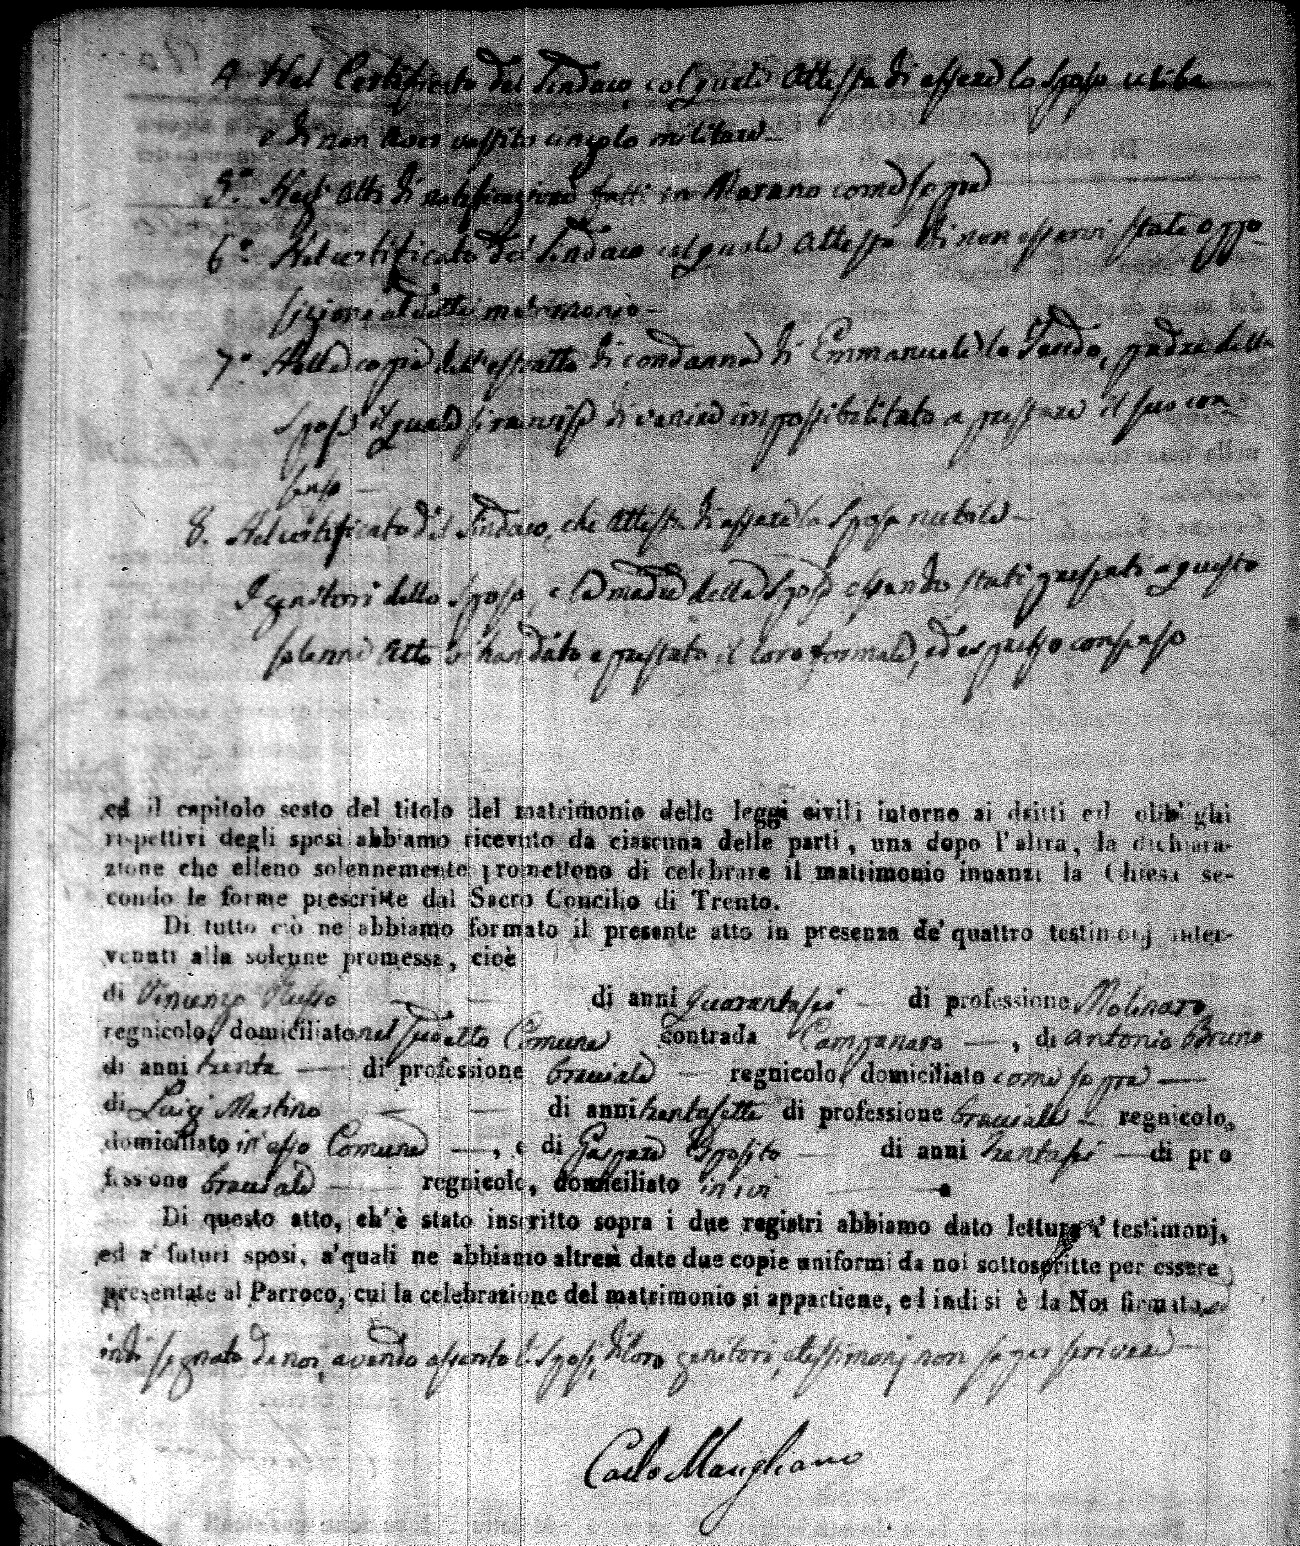 4. Nel Certificato del Sindaco, col quale attesta di essere lo sposo celibe
e di non aver vestito cingolo militare
5.° Negli atti di notificazione fatti in Marano come sopra
6.° Nel certificato del Sindaco col quale attesta di non esservi state oppo-
sizioni al detto matrimonio
7.° Nella copia dell'estratto di condanna di Emmanuele lo Tardo, padre della
sposa il quale si ravvisa di venire impossibilitato a prestare il suo con-
senso
8. Nel certificato del Sindaco, che attesta di essere la sposa nubile
I genitori dello sposo, e la madre della sposa essendo stati presenti a questo
solenne atto han dato e prestato il loro formale, ed espresso consenso
ed il capitolo sesto del titolo del matrimonio delle leggi civili intorno ai dritti ed obblighi
rispettivi degli sposi abbiamo ricevuto da ciascuna delle parti, una dopo l'altra, la dichiara-
zione che elleno solennemente promettono di celebrare il matrimonio innanzi la Chiesa se-
condo le forme prescritte dal Sacro Concilio di Trento.
Di tutto ciò ne abbiamo formato il presente atto in presenza de' quattro testimonj inter-
venuti alla solenne promessa, cioè
di Vincenzo Russo di anni quarantasei di professione Molinaro
regnicolo, domiciliato nel sudetto Comune contrada Campanaro, di Antonio Bruno
di anni trenta di professione bracciale regnicolo, domiciliato come sopra
di Luigi Mastino di anni trentasette di professione bracciale regnicolo,
domiciliato in esso Comune, e di Gaspare Esposito di anni trentasei di pro
fessione bracciale regnicolo, domiciliato in ivi
Di questo atto, ch'è stato inscritto sopra i due registri abbiamo dato lettura a' testimonj,
ed a' futuri sposi, a' quali ne abbiamo altresì date due copie uniformi da noi sottoscritte per essere
presentate al Parroco, cui la celebrazione del matrimonio si appartiene, ed indi si è da Noi firmata
indi segnato da noi, avendo asserito li sposi, di loro genitori, e testimonj non saper scrivere
Carlo Marigliano